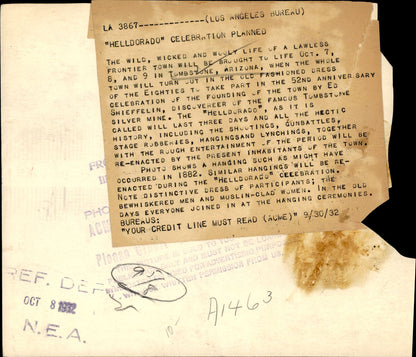 LA 3867-----------(LOS ANGELES BUREAU)
"HELLDORADO" CELEBRATION PLANNED
THE WILD, WICKED AND WOOLY LIFE OF A LAWLESS
FRONTIER TOWN WILL BE BROUGHT TO LIFE OCT. 7,
8, AND 9 IN TOMBSTONE, ARIZONA, WHEN THE WHOLE
TOWN WILL TURN OUT IN THE OLD FASHIONED DRESS
OF THE EIGHTIES TO TAKE PART IN THE 52ND ANNIVERSARY
CELEBRATION OF THE FOUNDING OF THE TOWN BY ED
SHIEFFELIN, DISCOVEREER OF THE FAMOUS TOMBSTONE
SILVER MINE. THE "HELLDORADO", AS IT IS
CALLED WILL LAST THREE DAYS AND ALL THE HECTIC
HISTORY, INCLUDING THE SHOOTINGS, GUNBATTLES,
STAGE ROBBERIES, HANGINGSAND LYNCHINGS, TOGETHER
WITH THE ROUGH ENTERTAINMENT OF THE PERIOD WILL BE
RE-ENACTED BY THE PRESENT INHABITANTS OF THE TOWN.
PHOTO SHOWS A HANGING SUCH AS MIGHT HAVE
OCCURRED IN 1882. SIMILAR HANGINGS WILL BE RE-
ENACTED DURING THE "HELLDORADO" CELEBRATION.
NOTE DISTINCTIVE DRESS OF PARTICIPANTS; THE
BEWHISKERED MEN AND MUSLIN-CLAD WOMEN. IN THE OLD
DAYS EVERYONE JOINED IN AT THE HANGING CEREMONIES.
BUREAUS:
"YOUR CREDIT LINE MUST READ (ACME)" 9/30/32
Please
REF. DEP
OCT 8 1932
N.E.A.
A1463